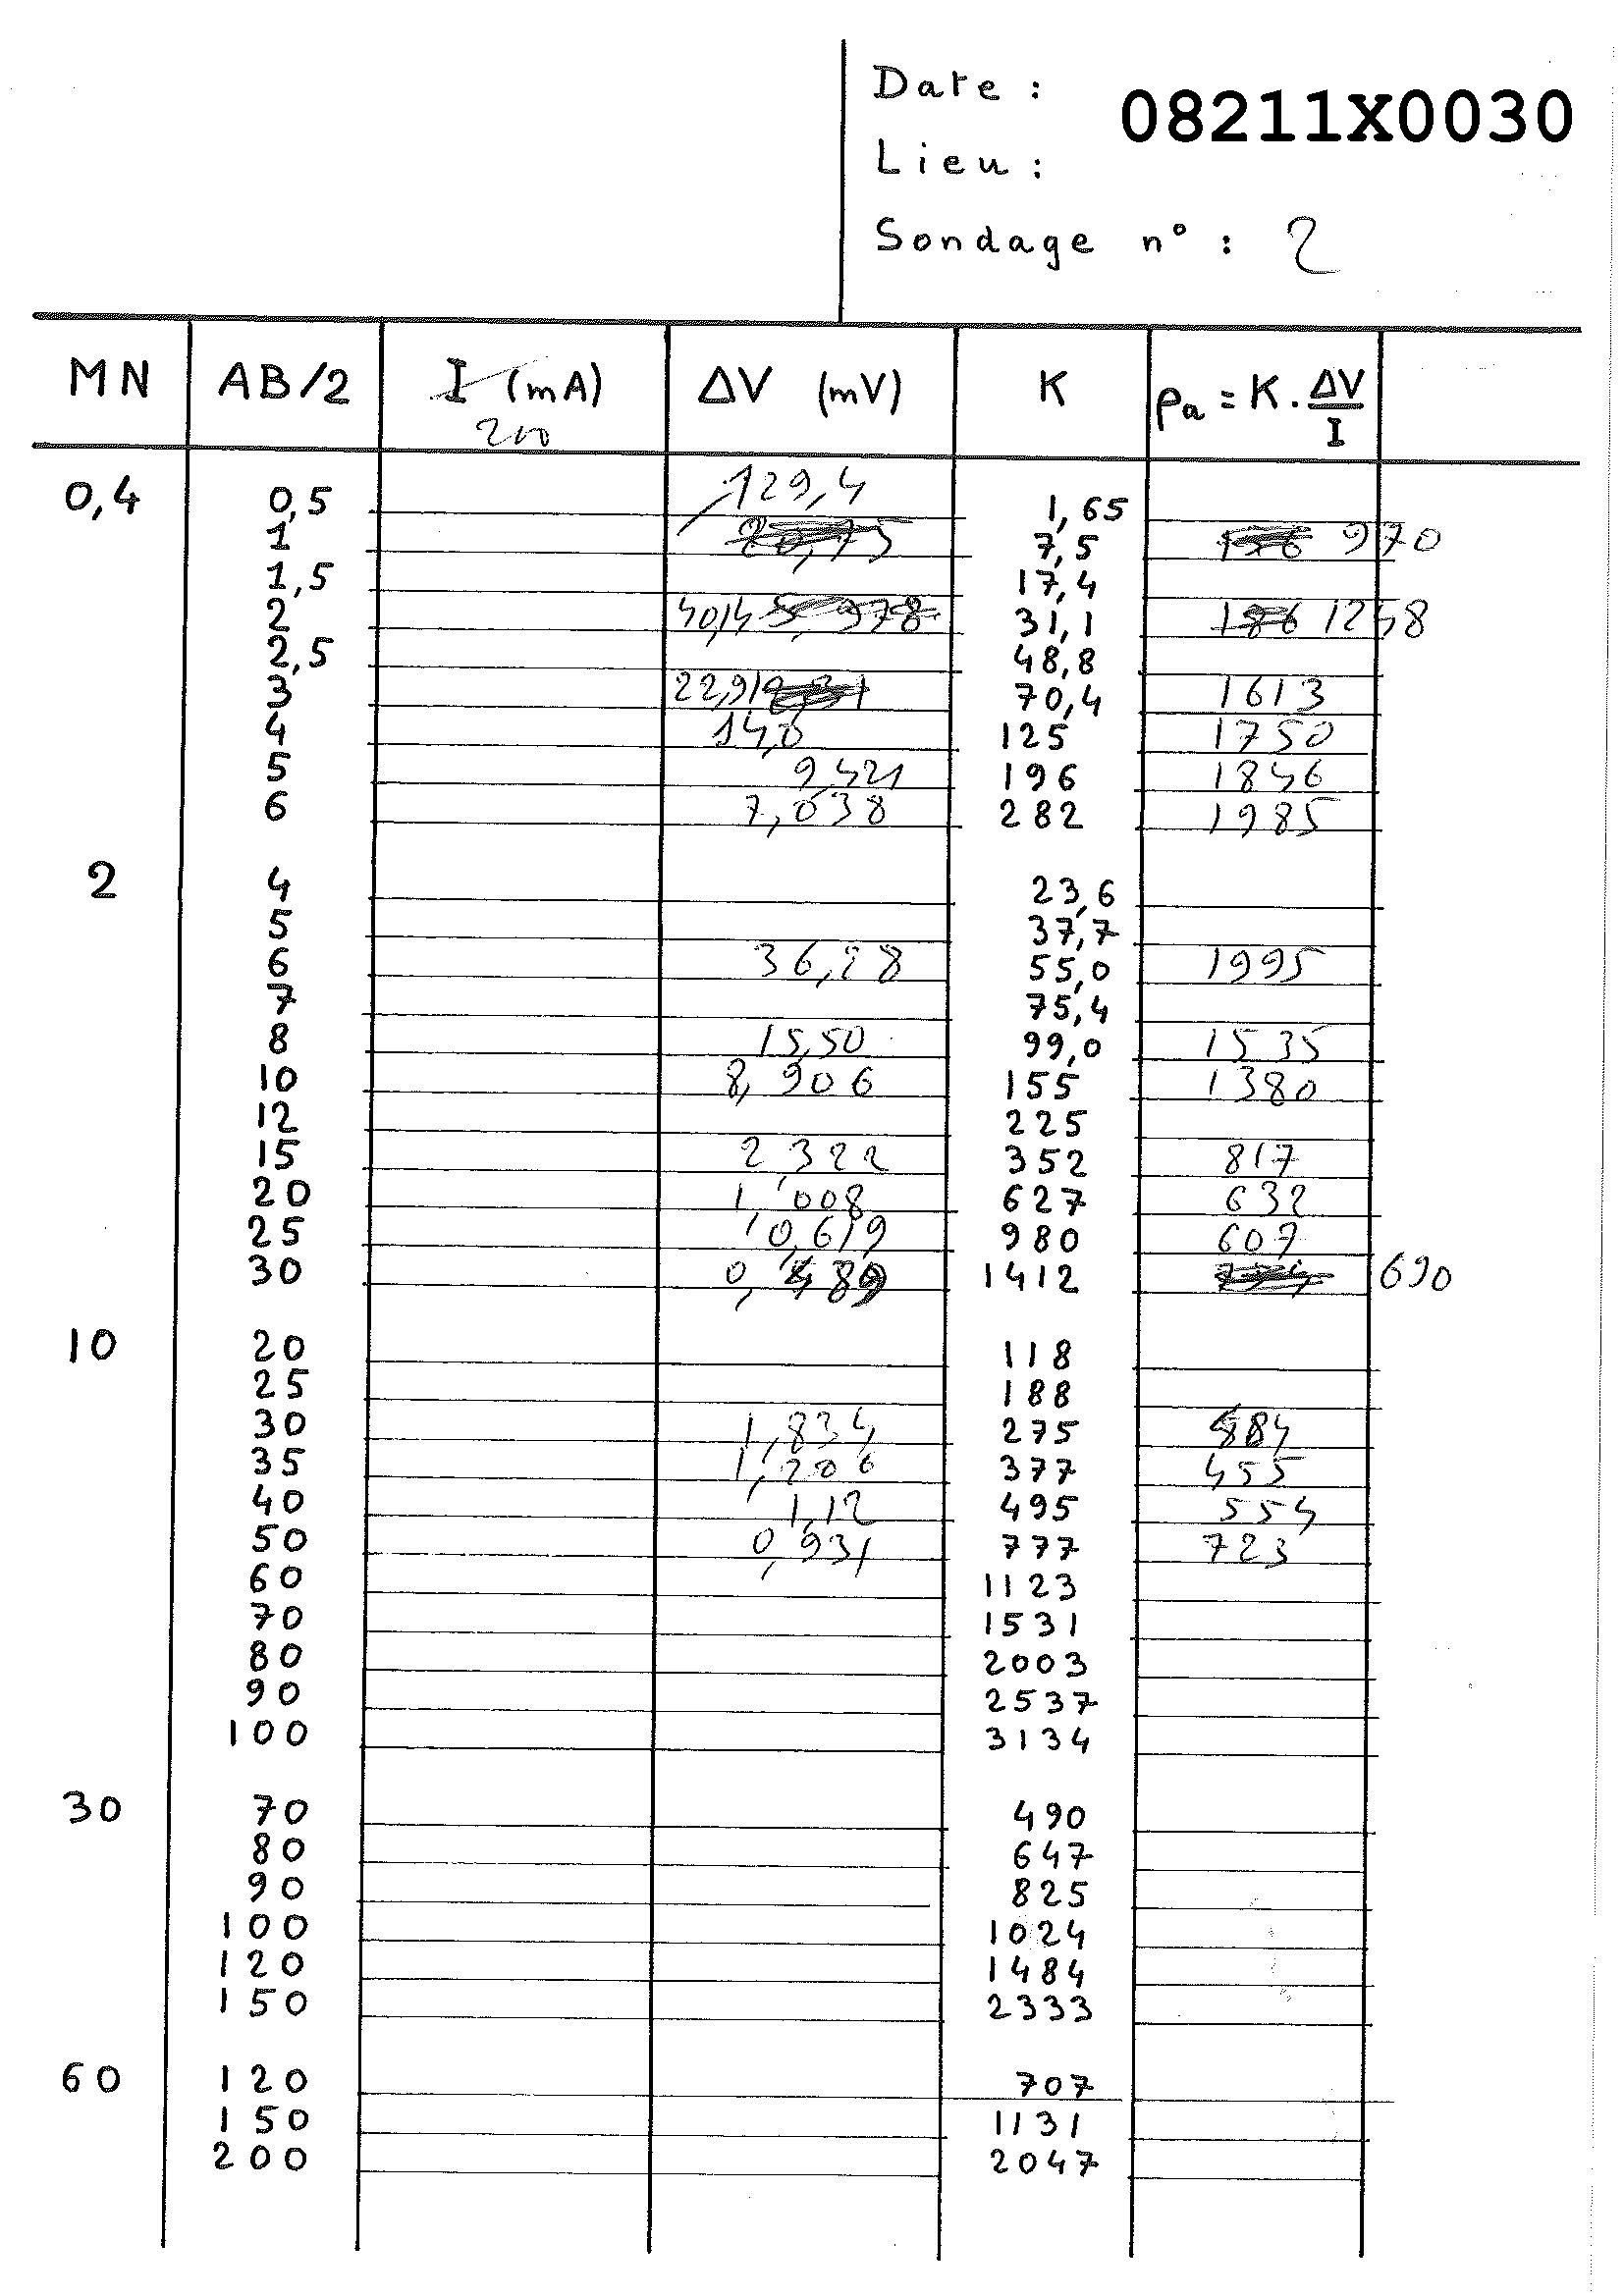 Date :
08211X0030
Lieu :
Sondage n° : 2
MN AB/2 I (mA) ΔV (mV) K ρa = K . ΔV/I
200
0,4 0,5 129,4 1,65
1 20,75 7,5 970
1,5 17,4
2 40,14 5,978 31,1 186 1248
2,5 48,8
3 22,91 70,4 1613
4 14,0 125 1750
5 9,421 196 1846
6 7,038 282 1985
2 4 23,6
5 37,7
6 36,28 55,0 1995
7 75,4
8 15,50 99,0 1535
10 8,906 155 1380
12 225
15 2,322 352 817
20 1,008 627 632
25 0,619 980 607
30 0,489 1412 690
10 20 118
25 188
30 1,834 275 484
35 1,206 377 455
40 1,12 495 554
50 0,931 777 723
60 1123
70 1531
80 2003
90 2537
100 3134
30 70 490
80 647
90 825
100 1024
120 1484
150 2333
60 120 707
150 1131
200 2047